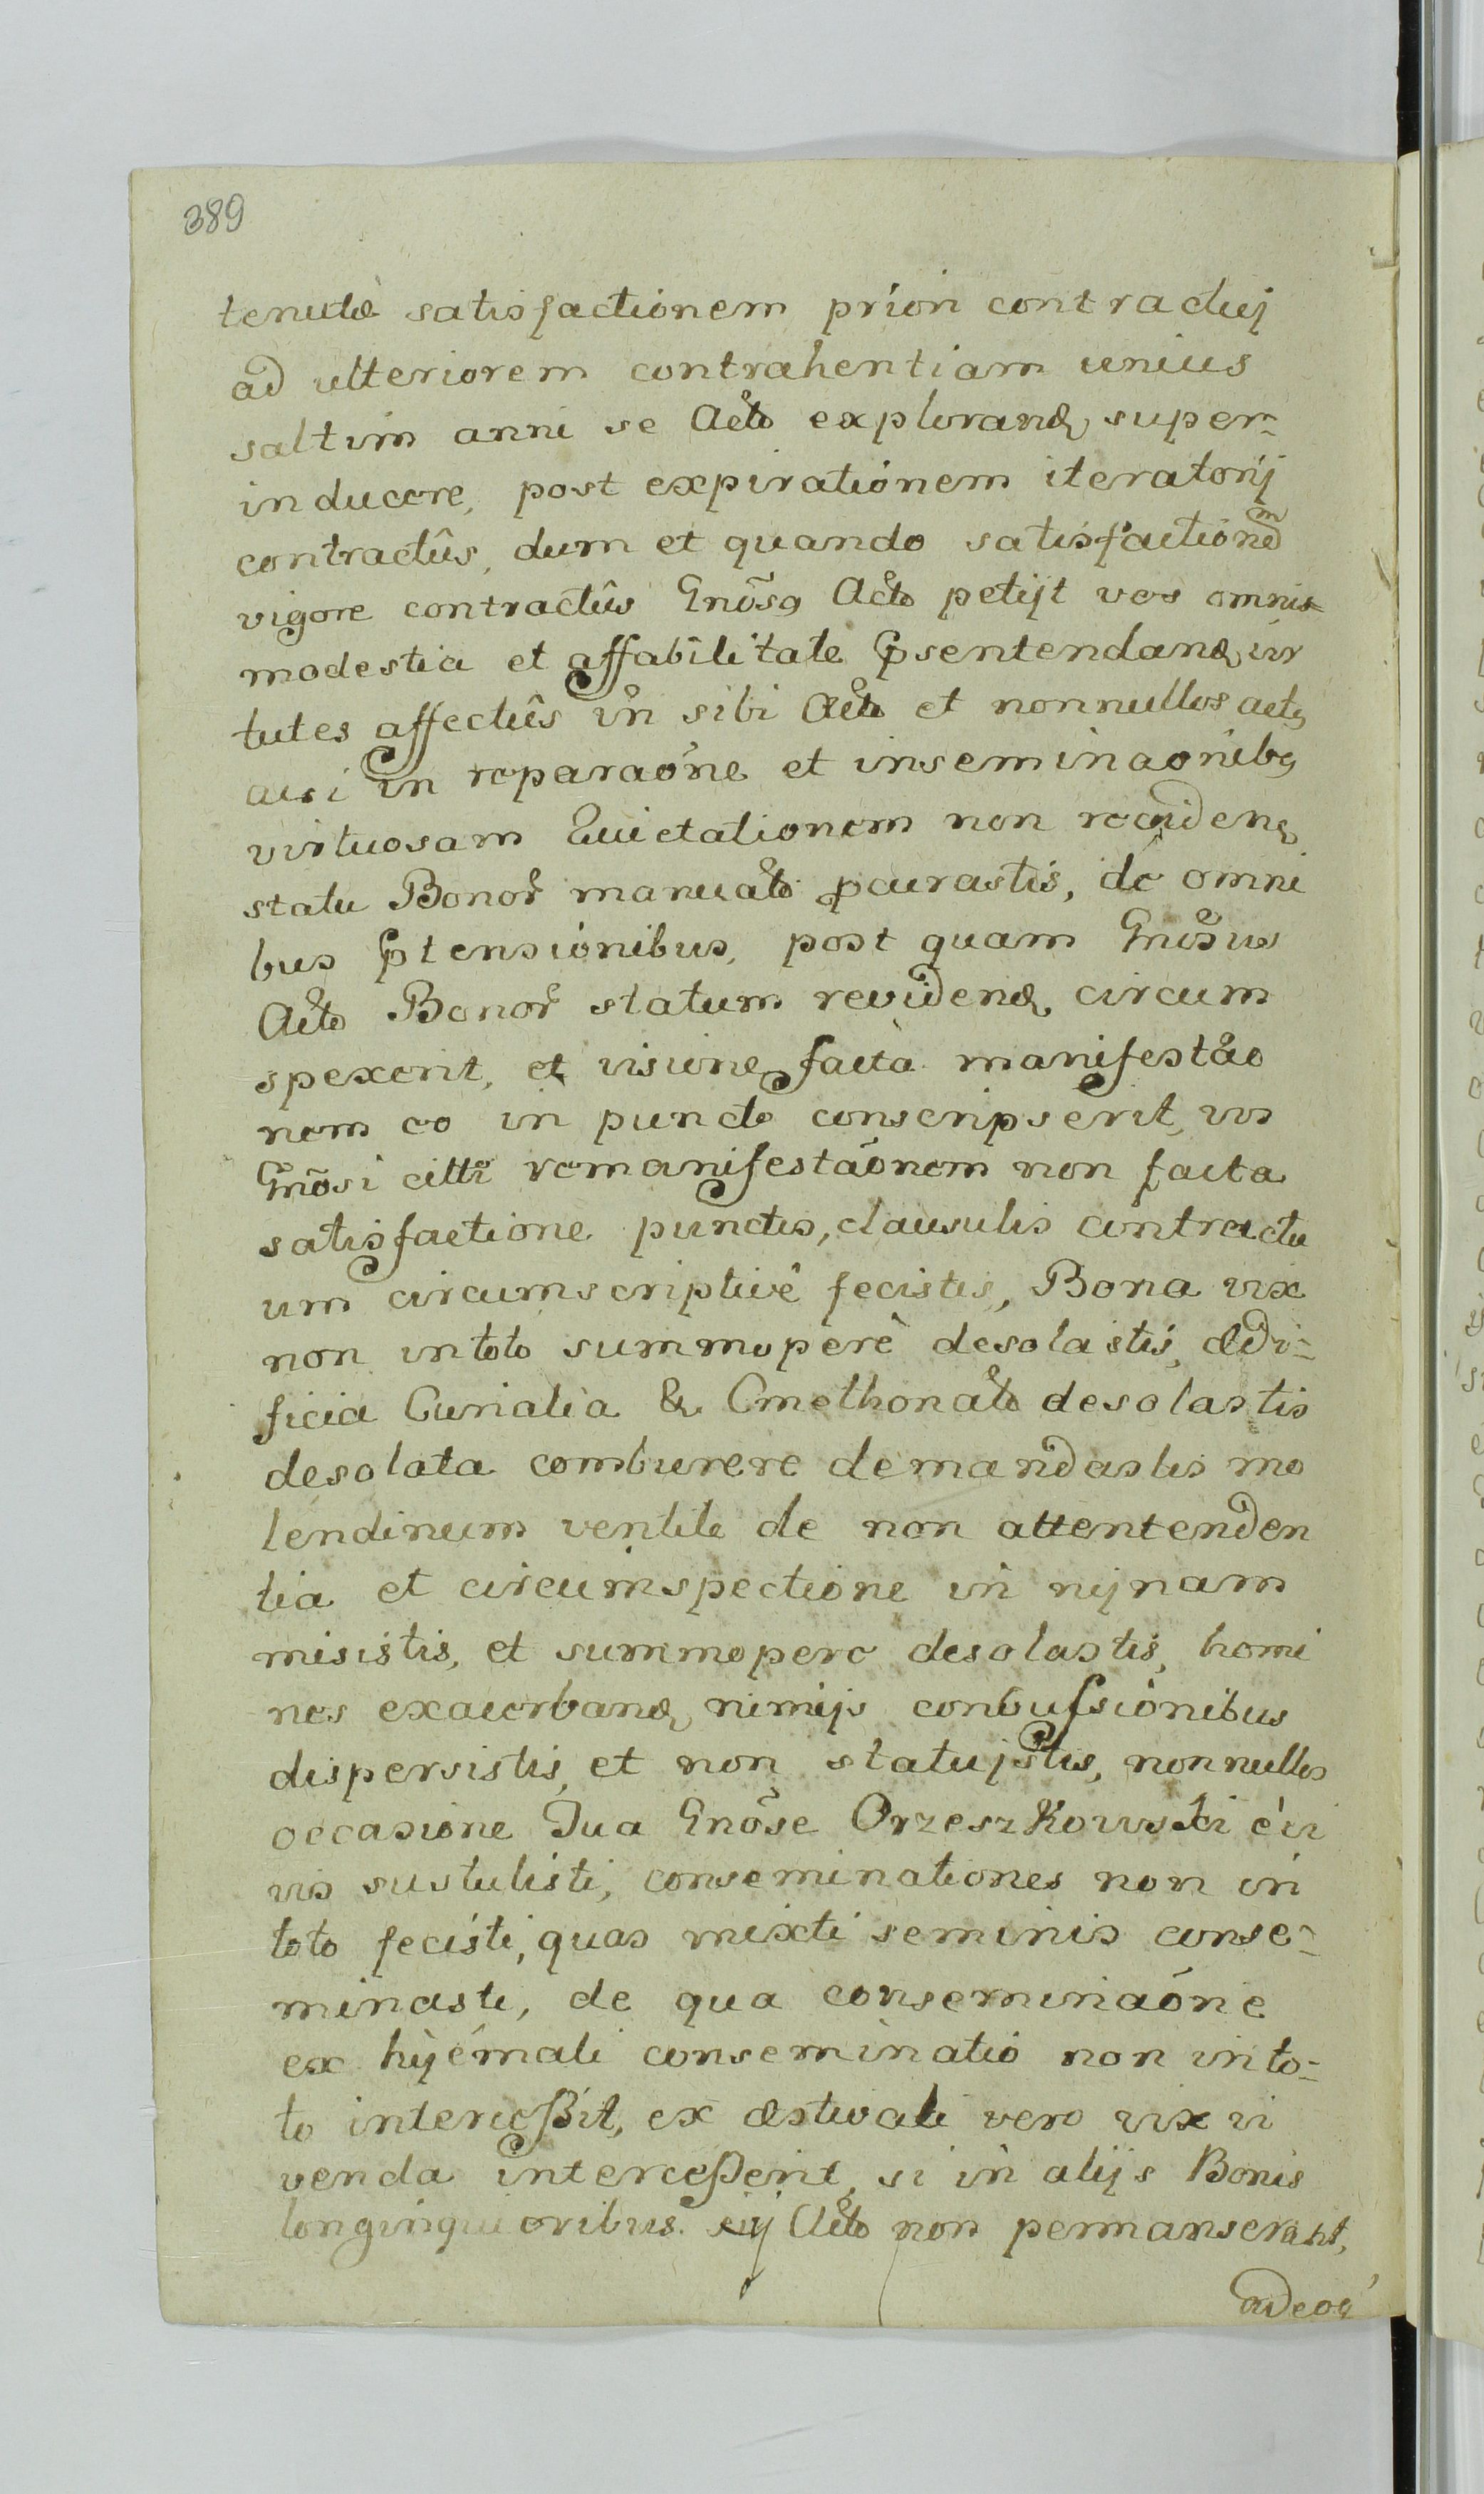 389
tenutæ satisfactionem priori contractuj
ad ulteriorem contrahentiam unius
saltim anni se Acto explorans super-
inducere, post expirationem iteratorij
contractûs, dum et quando satisfactionem
vigore contractûs Gnõsq Acto petijt vos omnis
modestia et affabilitate psentendans vir
tutes affectûs in sibi Acto et nonnullos actq
aisi in reparaõne et inseminaonibq
virtuosam Quietationem non recidens
statu Bonor manualo pcurastis, de omni
bus Ptensionibus, post quam Gnosus
Acto Bonor statum revidens circum
spexerit, et visione facta manifestao
nem eo in puncto conscripserit, vos
Gnõsi citti remanifestaõnem non facta
satisfactione punctis, clausulis contractu
um circumscriptivê fecistis, Bona vix
non intoto summoperè desolastis, ædi-
ficia Curialia & Cmethonalo desolastis
desolata comburere demandastis mo
lendinum ventile de non attentenden
tia et circumspectione in rujnam
misistis, et summopere desolastis, homi
nes exacerbans nimijs conbussionibus
dispersistis, et non statujstis, nonnullos
occasione Tua Gnõse Orzeszkowski è vi
vis sustulisti, conseminationes non in
toto fecisti, quas mixti seminis conse-
minasti, de qua conseminaõne
ex hyémali conseminatio non into-
to interceßit, ex æstivali vero vix vi
venda interceßerit, si in alijs Bonis
longinquioribus Acto non permanserant,
adeoq